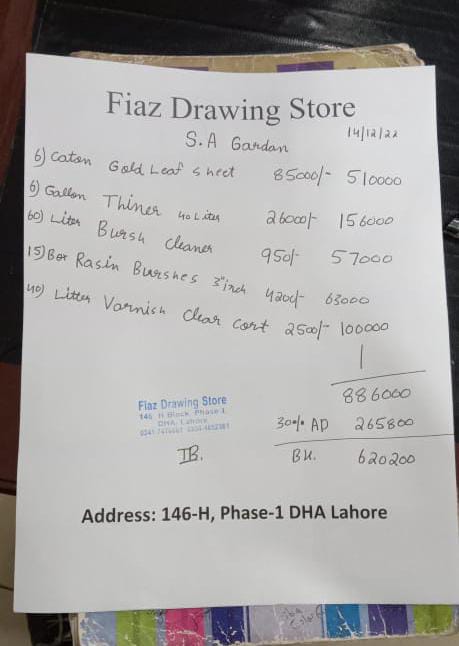 Fiaz Drawing Store
14/12/22
S.A Gardan
6) Caton Gold Leaf sheet 85000/- 510000
6) Gallon Thiner 40 Liter 26000/- 156000
60) Liter Bursh Cleaner 950/- 57000
15) Box Rasin Burshes 3"inch 4200/- 63000
40) Litter Varnish Clear cort 2500/- 100000
886000
30% AD 265800
620200
Fiaz Drawing Store
146 H Block Phase-1
DHA, Lahore
IB.
Address: 146-H, Phase-1 DHA Lahore